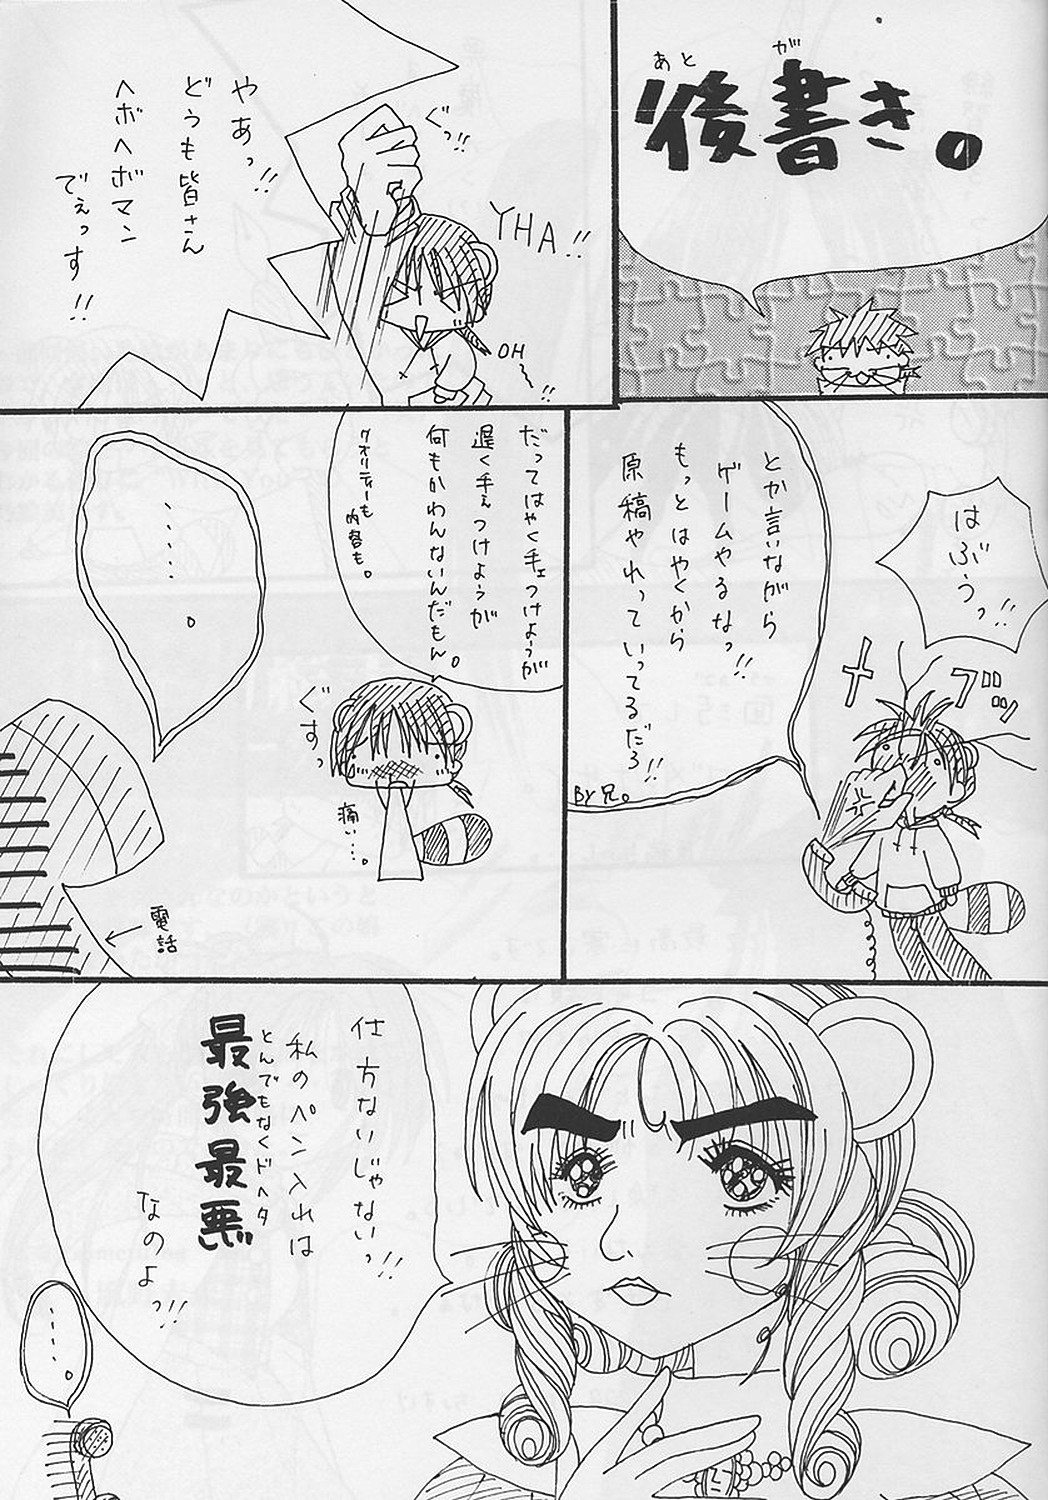 あと が
後書き。
やあっ!!
どうも皆さん
ヘボヘボマン
でぇっす!!
ぐっ!!
YHA!!
OH
!!
はぶぅっ!!
ブツッ
とか言いながら
ゲームやるなっ!!
もっとはやくから
原稿やれっていってるだろ!!
BY兄。
だってはやく手ェつけようが
遅く手ぇつけようが
何もかわんないんだもん。
クオリティーも
内容も。
ぐすっ
痛い…。
……。
電話
仕方ないじゃないっ!!
私のペン入れは
とんでもなくドヘタ
最強最悪
なのよっ!!
……。